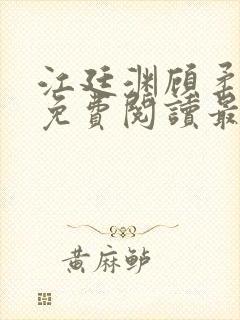 江廷渊顾矛
免費閱讀最
黄麻鲈